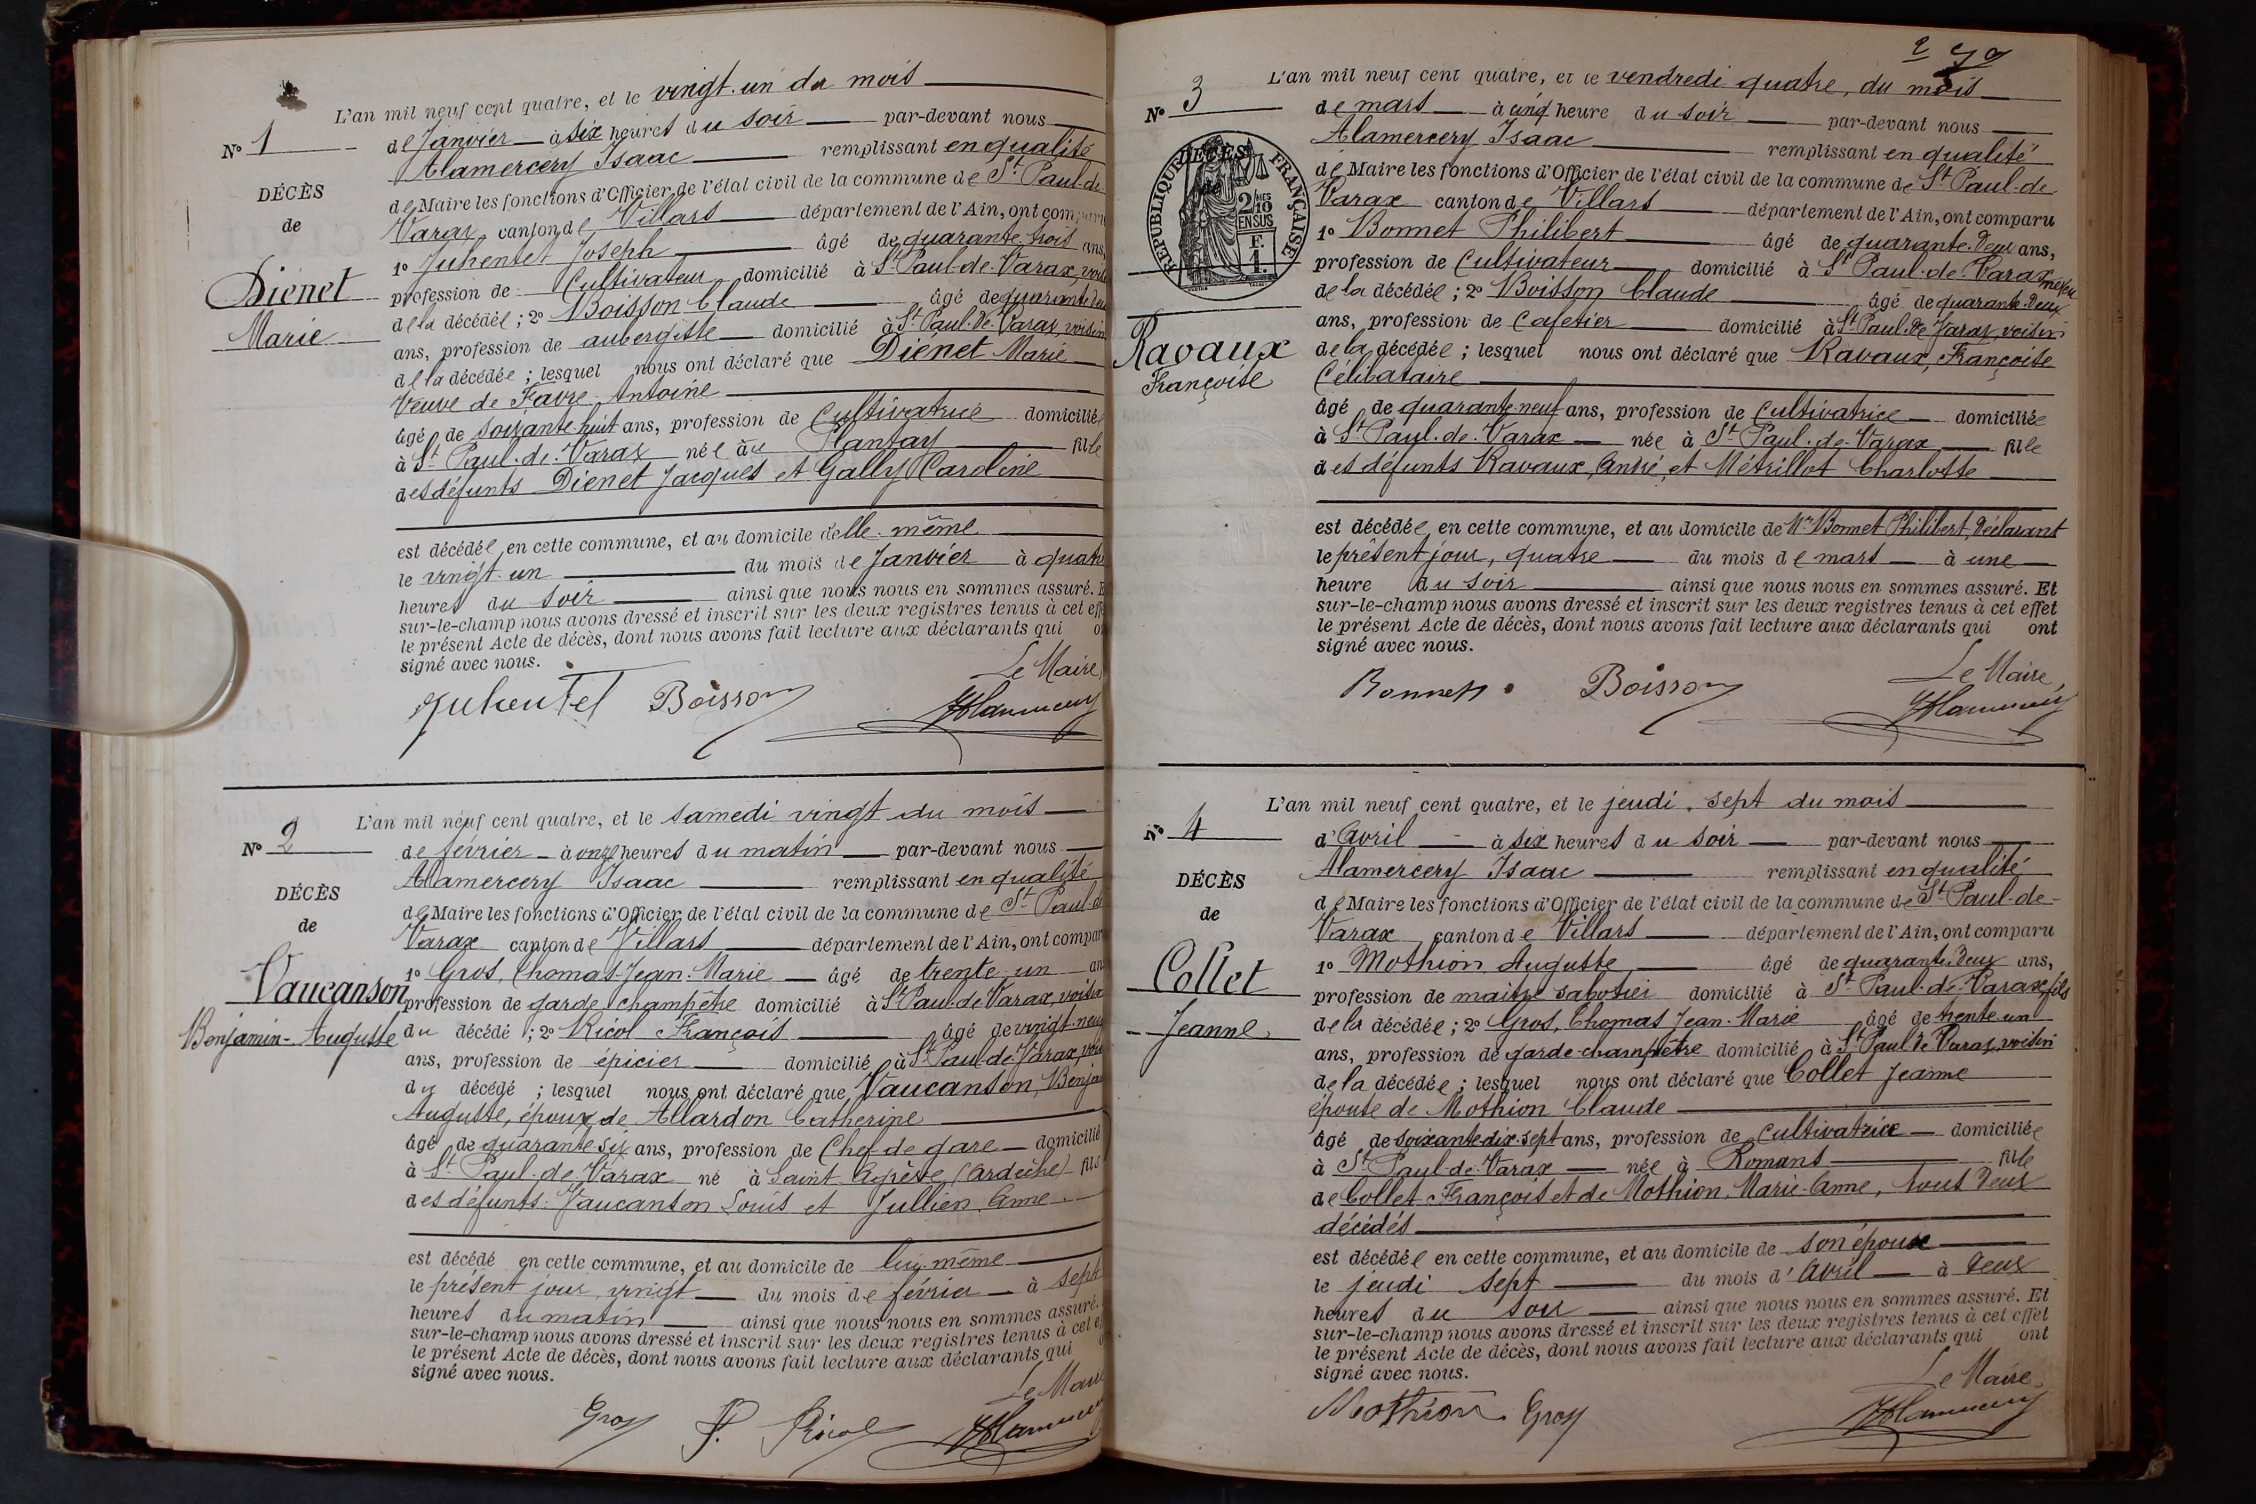 L'an mil neuf cent quatre, et le vingt-un du mois
N° 1
de Janvier à six heures du soir par-devant nous
Alamercery Isaac remplissant en qualité
DÉCÈS
de Maire les fonctions d'Officier de l'état civil de la commune de St Paul-de
de
Varax canton de Villars département de l'Ain, ont comparu
1° Juhentet Joseph âgé de quarante-trois ans,
Diénet
profession de Cultivateur domicilié à St Paul-de-Varax, voisin
de la décédée ; 2° Boisson Claude âgé de quarante deux
Marie
ans, profession de aubergiste domicilié à St Paul-de-Varax, voisin
de la décédée ; lesquel nous ont déclaré que Diénet Marie
Veuve de Favre Antoine
âgé de soixante-huit ans, profession de Cultivatrice domiciliée
à St Paul-de-Varax née au Plantay fille
des défunts Diénet Jacques et Gally Caroline
est décédée en cette commune, et au domicile delle-même
le vingt-un du mois de Janvier à quatre
heures du soir ainsi que nous nous en sommes assuré. E
sur-le-champ nous avons dressé et inscrit sur les deux registres tenus à cet effe
le présent Acte de décès, dont nous avons fait lecture aux déclarants qui on
signé avec nous.
Le Maire,
Juhentet Boisson
L'an mil neuf cent quatre, et le samedi vingt du mois
N° 2
de février à onze heures du matin par-devant nous
Alamercery Isaac remplissant en qualité
DÉCÈS
de Maire les fonctions d'Officier de l'état civil de la commune de St Paul-d
de
Varax canton de Villars département de l'Ain, ont compar
1° Gros, Thomas-Jean-Marie âgé de trente-un an
Vaucanson
profession de garde champêtre domicilié à St Paul-de-Varax, voisin
Benjamin-Auguste
du décédé ; 2° Ricol François âgé de vingt-neuf
ans, profession de épicier domicilié à St Paul-de-Varax, vois
du décédé ; lesquel nous ont déclaré que Vaucanson, Benja
Auguste, époux de Allardon Catherine
âgé de quarante six ans, profession de Chef de gare domicilié
à St Paul-de-Varax né à Saint Agrève (Ardèche) fils
des défunts Vaucanson Louis et Jullien Anne
est décédé en cette commune, et au domicile de lui-même
le présent jour, vingt du mois de février à sept
heures du matin ainsi que nous nous en sommes assuré.
sur-le-champ nous avons dressé et inscrit sur les deux registres tenus à cet e
le présent Acte de décès, dont nous avons fait lecture aux déclarants qui
signé avec nous.
Le Maire
Gros F. Ricol
L'an mil neuf cent quatre, et le vendredi quatre, du mois
N° 3
de mars à cinq heure du soir par-devant nous
Alamercery Isaac remplissant en qualité
RÉPUBLIQUE FRANÇAISE
DÉCÈS
de
2/10 EN SUS
F. 1.
de Maire les fonctions d'Officier de l'état civil de la commune de St Paul-de
Varax canton de Villars département de l'Ain, ont comparu
1° Bonnet Philibert âgé de quarante-deux ans,
profession de Cultivateur domicilié à St Paul-de-Varax neveu
de la décédée ; 2° Boisson Claude âgé de quarante-deux
ans, profession de Cafetier domicilié à St Paul-de-Varax, voisin
Ravaux
Françoise
de la décédée ; lesquel nous ont déclaré que Ravaux, Françoise
Célibataire
âgé de quarante-neuf ans, profession de Cultivatrice domiciliée
à St Paul-de-Varax née à St Paul-de-Varax fille
des défunts Ravaux, André, et Métrillot Charlotte
est décédée en cette commune, et au domicile de Mr Bonnet Philibert, Déclarant
le présent jour, quatre du mois de mars à une
heure du soir ainsi que nous nous en sommes assuré. Et
sur-le-champ nous avons dressé et inscrit sur les deux registres tenus à cet effet
le présent Acte de décès, dont nous avons fait lecture aux déclarants qui ont
signé avec nous.
Le Maire,
Bonnet Boisson
L'an mil neuf cent quatre, et le jeudi, sept du mois
N° 4
d'Avril à six heures du soir par-devant nous
Alamercery Isaac remplissant en qualité
DÉCÈS
de Maire les fonctions d'Officier de l'état civil de la commune de St Paul-de-
de
Varax canton de Villars département de l'Ain, ont comparu
1° Mothion Auguste âgé de quarante-deux ans,
Collet
profession de maitre sabotier domicilié à St Paul-de-Varax, fils
Jeanne
de la décédée ; 2° Gros, Thomas Jean-Marie âgé de trente-un
ans, profession de garde-champêtre domicilié à St Paul de Varax, voisin
de la décédée ; lesquel nous ont déclaré que Collet Jeanne
épouse de Mothion Claude
âgé de soixante-dix-sept ans, profession de Cultivatrice domiciliée
à St Paul-de-Varax née à Romans fille
de Collet François et de Mothion, Marie-Anne, tous deux
décédés
est décédée en cette commune, et au domicile de son époux
le jeudi sept du mois d'Avril à deux
heures du soir ainsi que nous nous en sommes assuré. Et
sur-le-champ nous avons dressé et inscrit sur les deux registres tenus à cet effet
le présent Acte de décès, dont nous avons fait lecture aux déclarants qui ont
signé avec nous.
Le Maire,
Mothion Gros